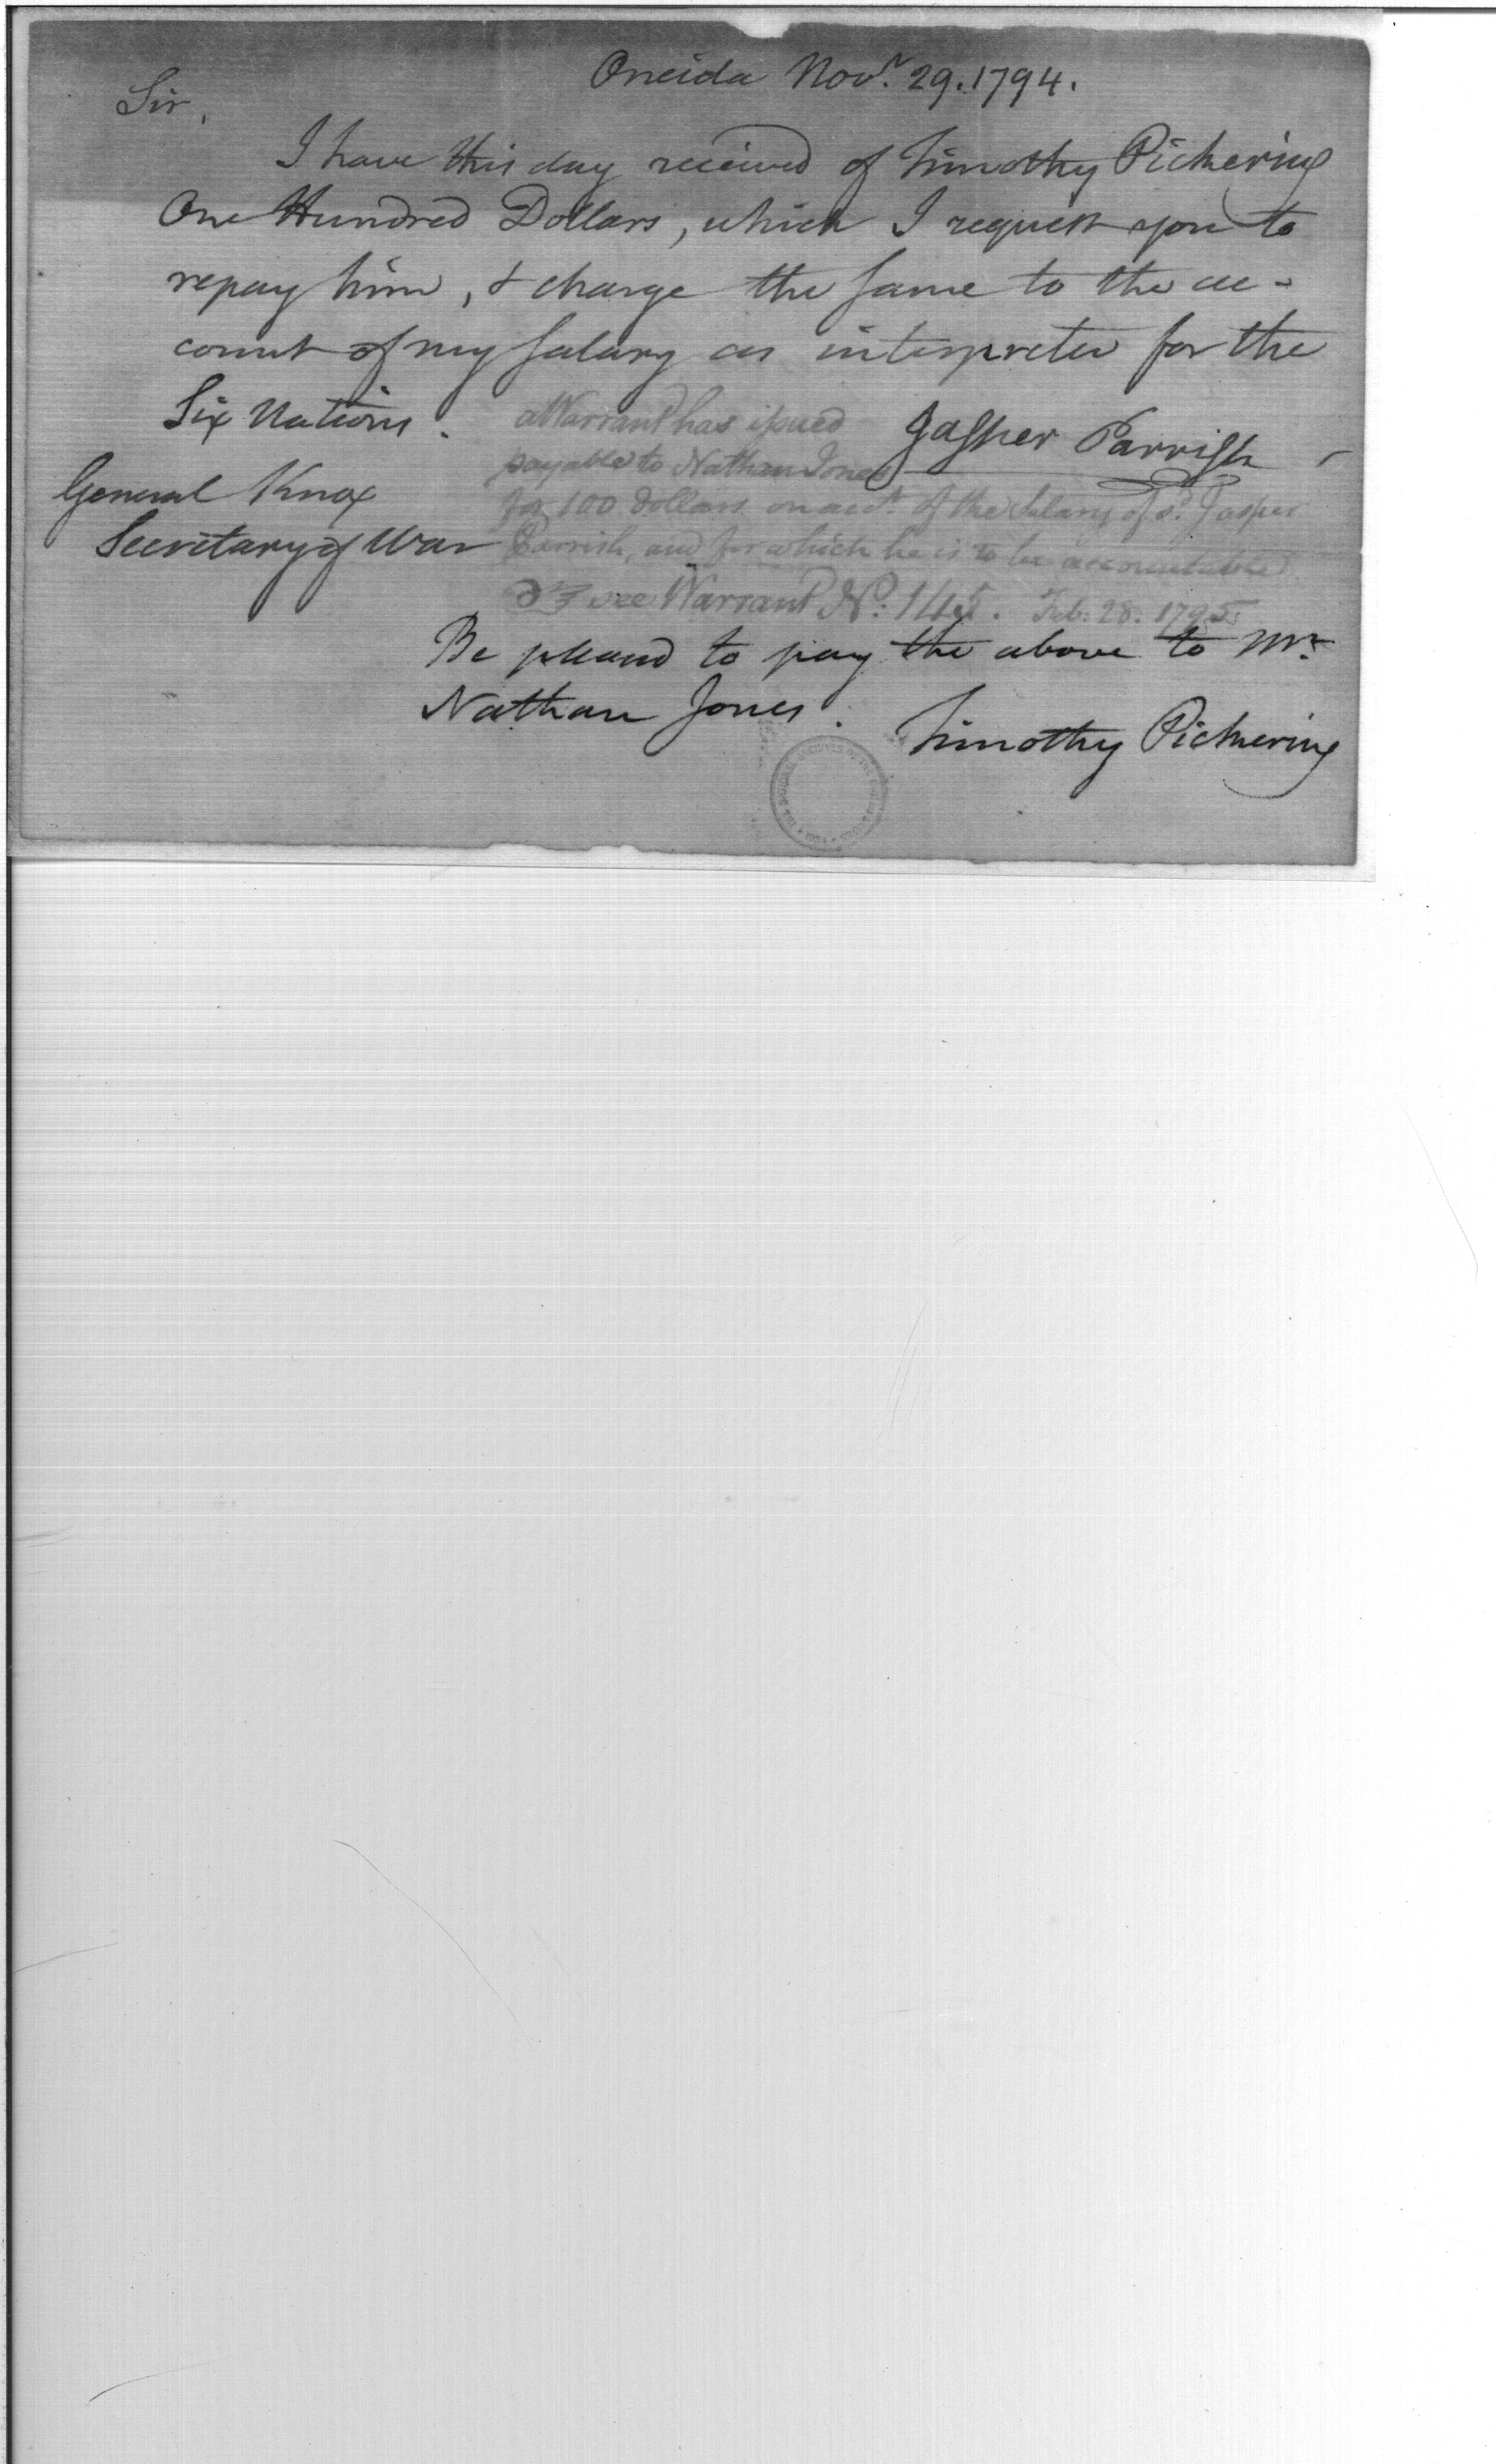 Oneida Nov.r 29. 1794.
Sir,
I have this day received of Timothy Pickering
One Hundred Dollars, which I request you to
repay him, & charge the same to the ac-
count of my salary as interpreter for the
Six Nations.
Jasper Parrish
a Warrant has issued
payable to Nathan Jones
for 100 dollars on acct. of the Salary of sd. Jasper
Parrish, and for which he is to be accountable
see Warrant No:
Feb: 28. 1795
General Knox
Secretary of War
Be pleased to pay the above to Mr.
Nathan Jones.
Timothy Pickering